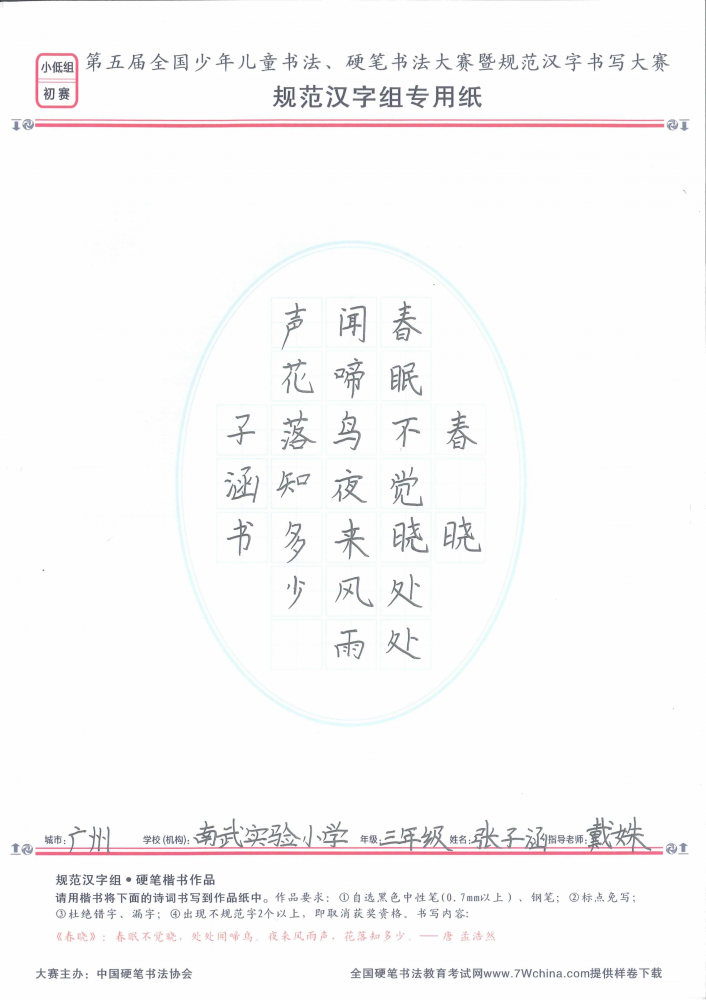 小低组
初赛
第五届全国少年儿童书法、硬笔书法大赛暨规范汉字书写大赛
规范汉字组专用纸
春晓
春眠不觉晓处处
闻啼鸟夜来风雨
声花落知多少
子涵书
城市：广州 学校(机构)：南武实验小学 年级：三年级 姓名：张子涵 指导老师：戴姝
规范汉字组●硬笔楷书作品
请用楷书将下面的诗词书写到作品纸中。作品要求：①自选黑色中性笔(0.7mm以上）、钢笔；②标点免写；
③杜绝错字、漏字；④出现不规范字2个以上，即取消获奖资格。书写内容：
《春晓》：春眠不觉晓，处处闻啼鸟。夜来风雨声，花落知多少。——唐 孟浩然
大赛主办：中国硬笔书法协会
全国硬笔书法教育考试网www.7Wchina.com提供样卷下载